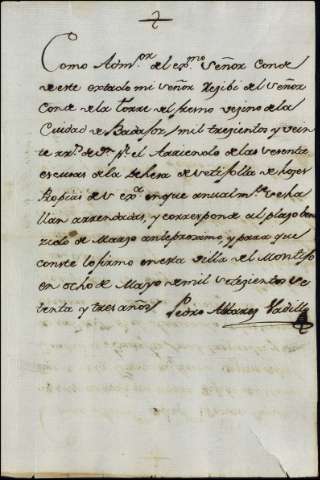 Como Adm.or del ex.mo Señor Conde
de este extado mi Señor Rezibi del Señor
Conde de la Torre del fresno vezino de la
Ciudad de Badajoz, mil trezientos y vein
te rr.s de v.n p.r el Arriendo de las
escusas de la Dehesa de
Propias de S. ex.a en que anualm.te se ha
llan arrendadas, y corresponde al plazo ben
zido de Marzo anteproximo, y para que
conste lo firmo en esta villa del Montijo
en ocho de Mayo de mil setezientos se
tenta y tres años
Pedro Alvarez Vadillo